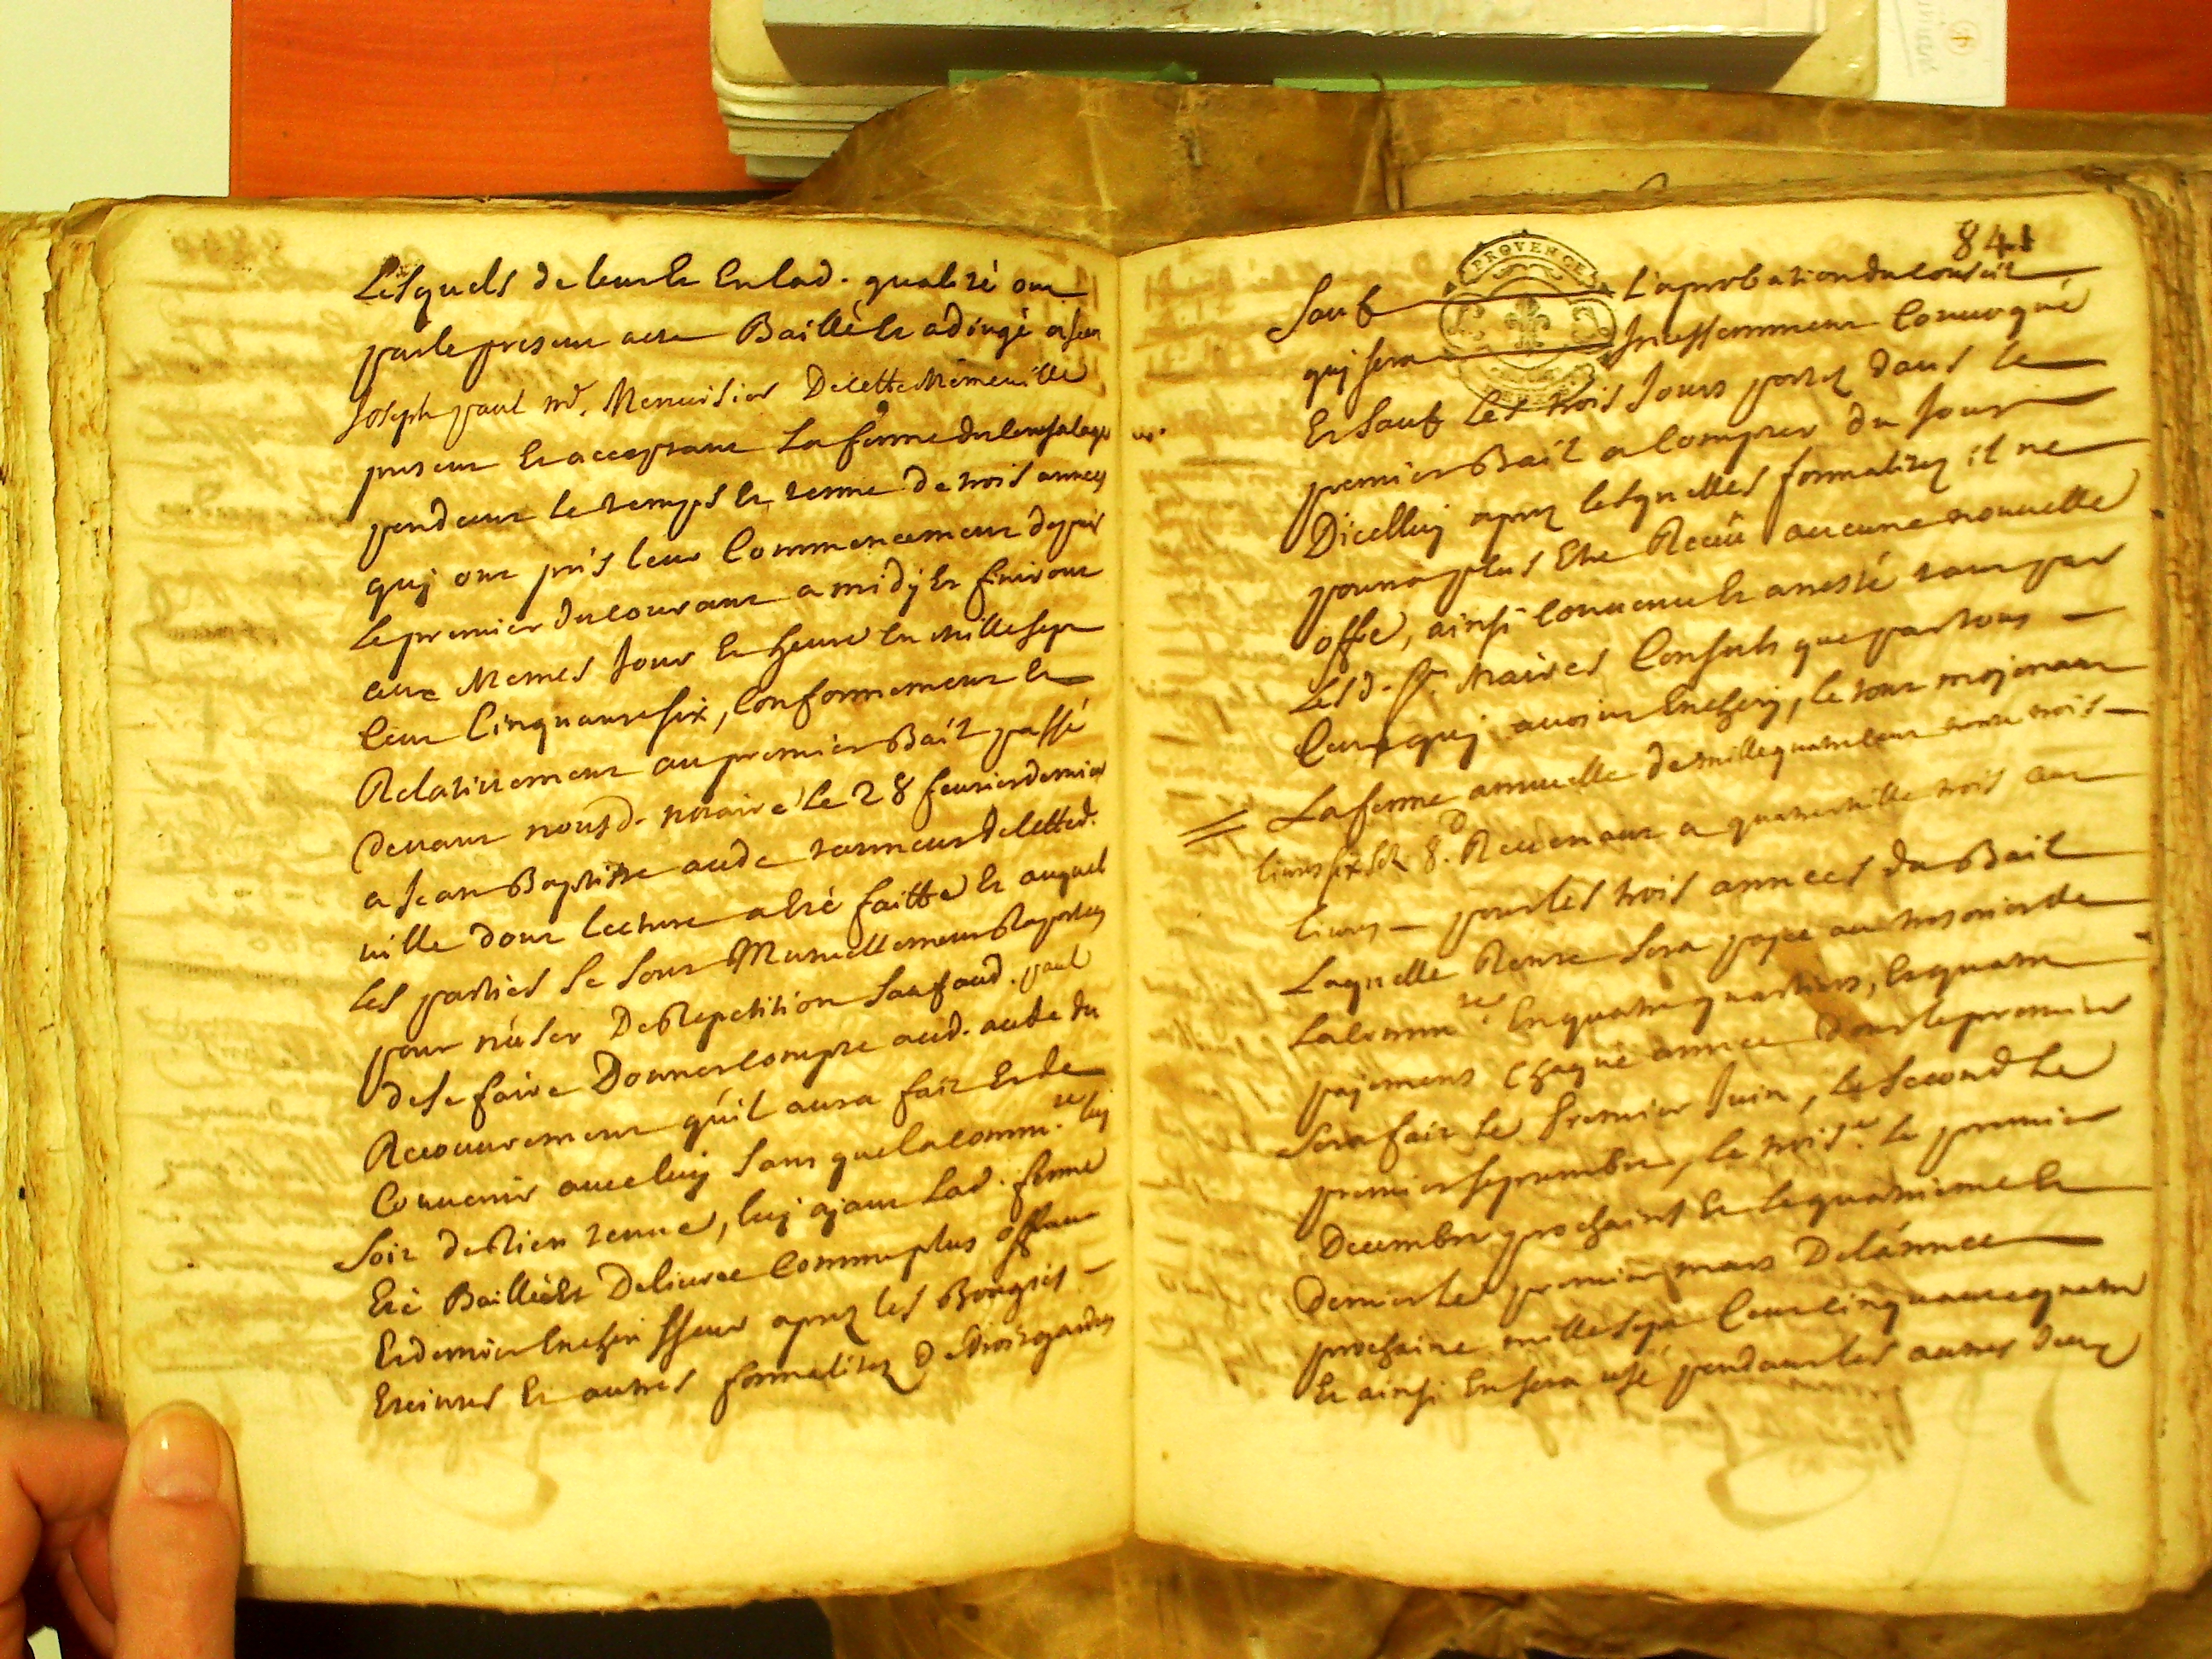 Lesquels de leur Er En lad. qualité ont
par le present acte Baillé Er adjugé a sieur
Joseph paul md. Menuisier De cette Meme ville
present Er acceptant La ferme du Censalage
pendant le temps Er terme de trois années
quj ont pris leur Commencement depuis
Le premier du courant a midj Er finiront
aux Memes Jour Er heure En Mille sept
Cent Cinquante six, Conformement Er
Relativement au premier Bait passé
devant nousd. notaire Le 28 feurier dernier
a Jean Baptiste aude tanneur de cetted.
ville dont Lecture a Eté faitte Er auquel
Les parties se sont Mutuellement Raportes
pour n'user De Repetition Sauf aud. paul
de se faire Donner compte aud. aude du
Recouurement qu'il aura fait Er de
Conuenir auec luy sans que la comm.te luj
soit de Rien tenue, luj ajant Lad. ferme
Eté Baillée Er Deliurée Comme plus offrant
Er dernier Encherisseur aprez les Bougies
Eteintes Er autres formalitez De droit gardées
841
PROVENCE
Sauf L'aprobation du Conseil
quj sera Incessemment Conuoqué
Er Sauf Les trois Jours portez dans le
premier Bait a Compter du Jour
Dicelluy aprez lesquelles formalitez il ne
pourra plus Etre Receu aucune nouuelle
offre, ainsi Conuenu Er arresté tant par
Lesd. Srs. Maires Consuls que par tous
Ceux quj auoient Encherj, le tout mojenant
La ferme annuelle de mille quatre cent trente trois
liures six sols 8.d Reuenant a quatre mille trois cent
liures pour les trois années du Bail
Laquelle Rente sera payée au tresorier de
La Comm.te En quatre quartiers, Er quatre
pajements Chaque année Dont le premier
Sera fait Le premier Juin, Le Second Le
premier septembre, le trois.e le premier
Decembre prochains Er le quatrieme Er
dernier Le premier mars De l'année
prochaine mille sept Cent cinquante quatre
Er ainsi En sera usé pendant les autres deux